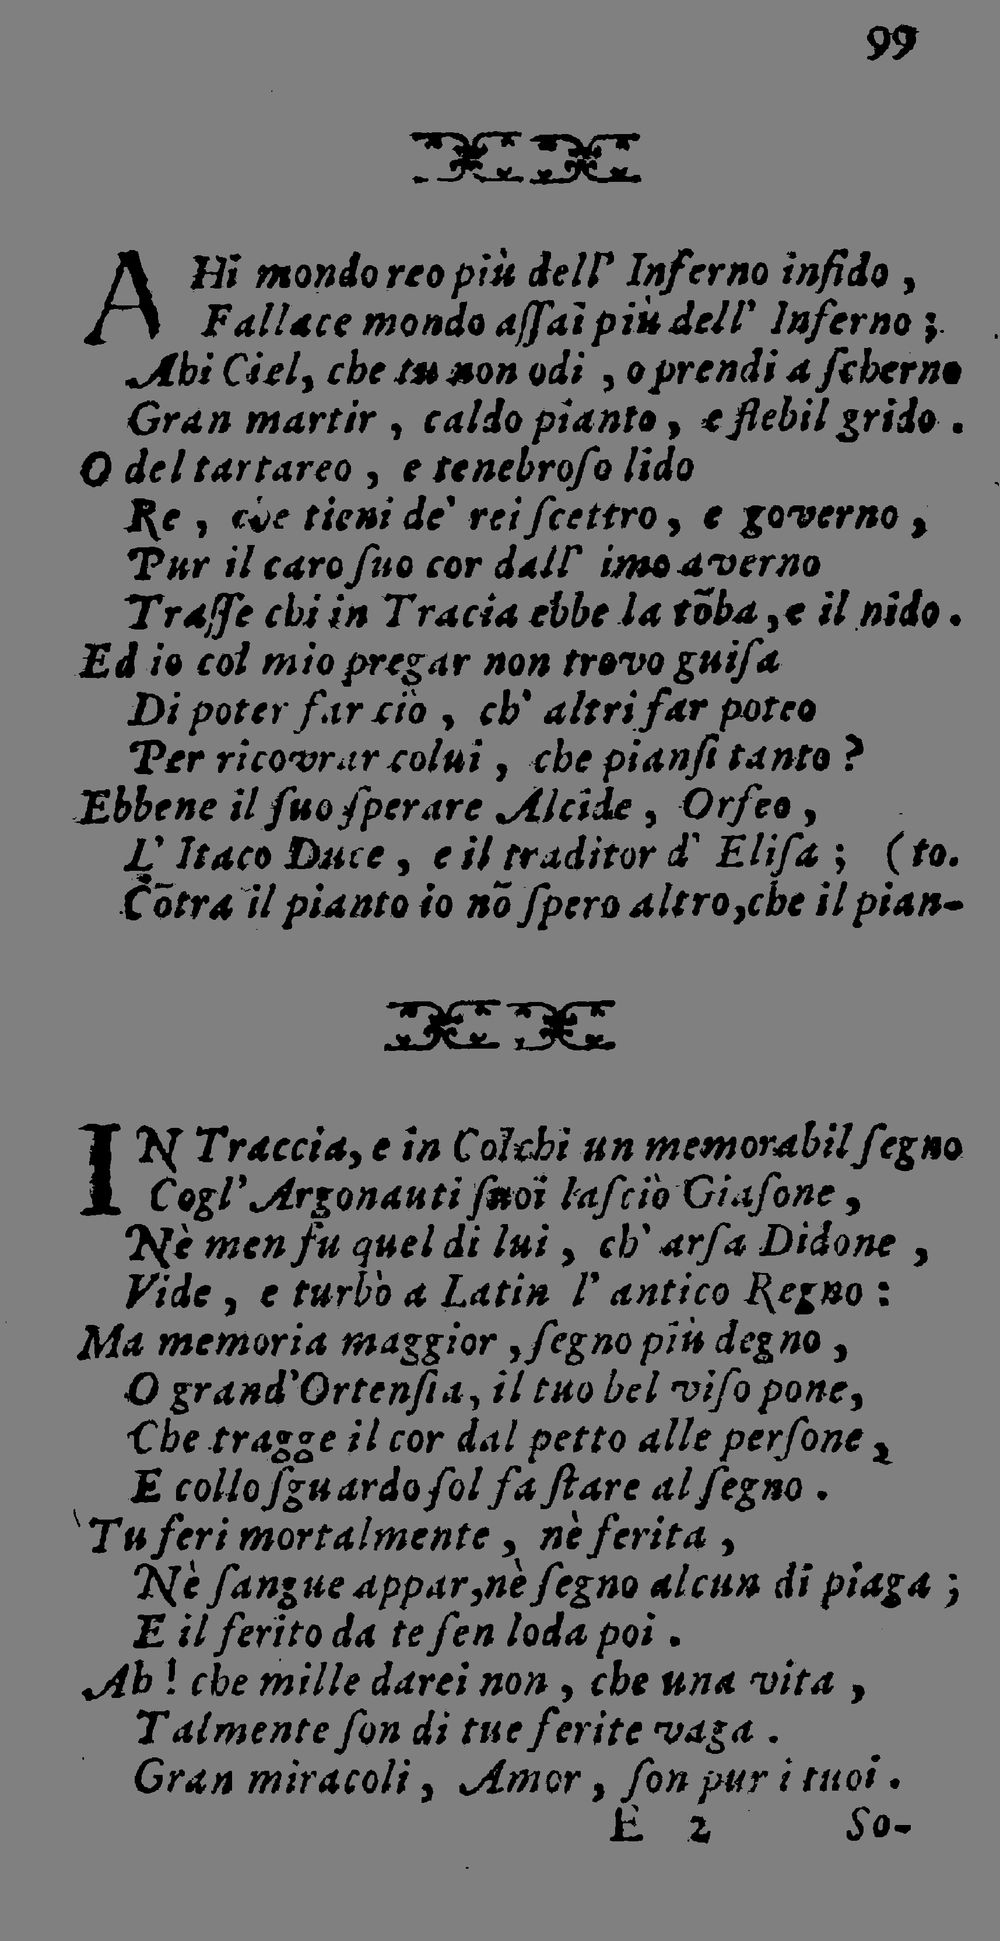 99
AHi mondo reo più dell' Inferno infido,
Fallace mondo aſſai più dell' Inferno;
Ahi Ciel, che tu non odi, o prendi a ſcherno
Gran martir, caldo pianto, e flebil grido.
O del tartareo, e tenebroſo lido
Re, che tieni de' rei ſcettro, e governo,
Pur il caro ſuo cor dall' imo averno
Traſſe chi in Tracia ebbe la tõba, e il nido.
Ed io col mio pregar non trovo guiſa
Di poter far ciò, ch' altri far poteo
Per ricovrar colui, che pianſi tanto?
Ebbene il ſuo ſperare Alcide, Orfeo,
L' Itaco Duce, e il traditor d' Eliſa; (to.
Cõtra il pianto io nõ ſpero altro, che il pian-
IN Traccia, e in Colchi un memorabil ſegno
Cogl' Argonauti ſuoi laſciò Giaſone,
Nè men fu quel di lui, ch' arſa Didone,
Vide, e turbò a Latin l' antico Regno:
Ma memoria maggior, ſegno più degno,
O grand' Ortenſia, il tuo bel viſo pone,
Che tragge il cor dal petto alle perſone,
E collo ſguardo ſol fa ſtare al ſegno.
Tu feri mortalmente, nè ferita,
Nè ſangue appar, nè ſegno alcun di piaga;
E il ferito da te ſen loda poi.
Ah! che mille darei non, che una vita,
Talmente ſon di tue ferite vaga.
Gran miracoli, Amor, ſon pur i tuoi.
E 2 So-